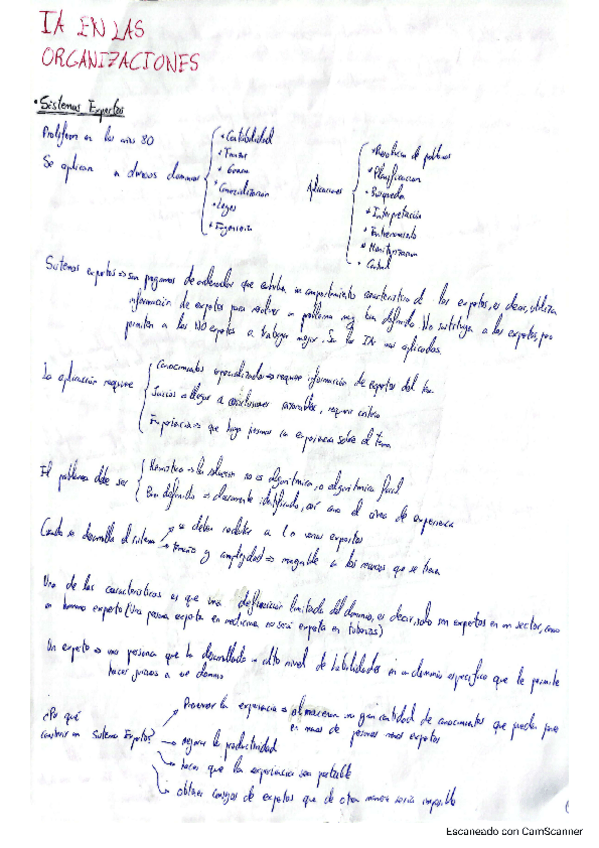 IA EN LAS
ORGANIZACIONES
• Sistemas Expertos
Proliferan en los años 80
Se aplican a diversos dominios
• Contabilidad
• Comercialización
• Leyes
• Ingeniería
Aplicaciones
• Resolución de problemas
• Planificación
• Búsqueda
• Interpretación
• Entrenamiento
• Monitorización
• Control
Sistemas expertos ⇒ son programas de ordenador que exhiben un comportamiento característico de los expertos, es decir, utiliza
información de expertos para resolver un problema muy bien definido. No sustituye a los expertos, pero
permiten a los NO expertos a trabajar mejor. Son las IAs más aplicadas.
La aplicación requiere
Conocimientos especializados ⇒ requiere información de expertos del tema
Juicios a llegar a conclusiones razonables, requiere criterio
Experiencia ⇒ que haya personas con experiencia sobre el tema
El problema debe ser
Heurístico ⇒ la solución no es algorítmica, o algorítmica fácil
Bien definido ⇒ claramente identificado, así como el área de experiencia
Cuando se desarrolla el sistema
se deben recluir a 1 o varios expertos
tamaño y complejidad ⇒ manejable a los recursos que se tienen
Una de las características es que una definición limitada del dominio, es decir, solo son expertos en un sector, como
un humano experto (Una persona experta en medicina no será experta en tuberías)
Un experto ⇒ una persona que ha desarrollado un alto nivel de habilidades en un dominio específico que le permite
hacer juicios a ese dominio
¿Por qué
construir un Sistema Experto?
Preservar la experiencia ⇒ almacenan una gran cantidad de conocimientos que puedan poner
en manos de personas menos expertas
mejorar la productividad
hacer que la experiencia sea portable
obtener consejos de expertos que de otra manera sería imposible
Escaneado con CamScanner